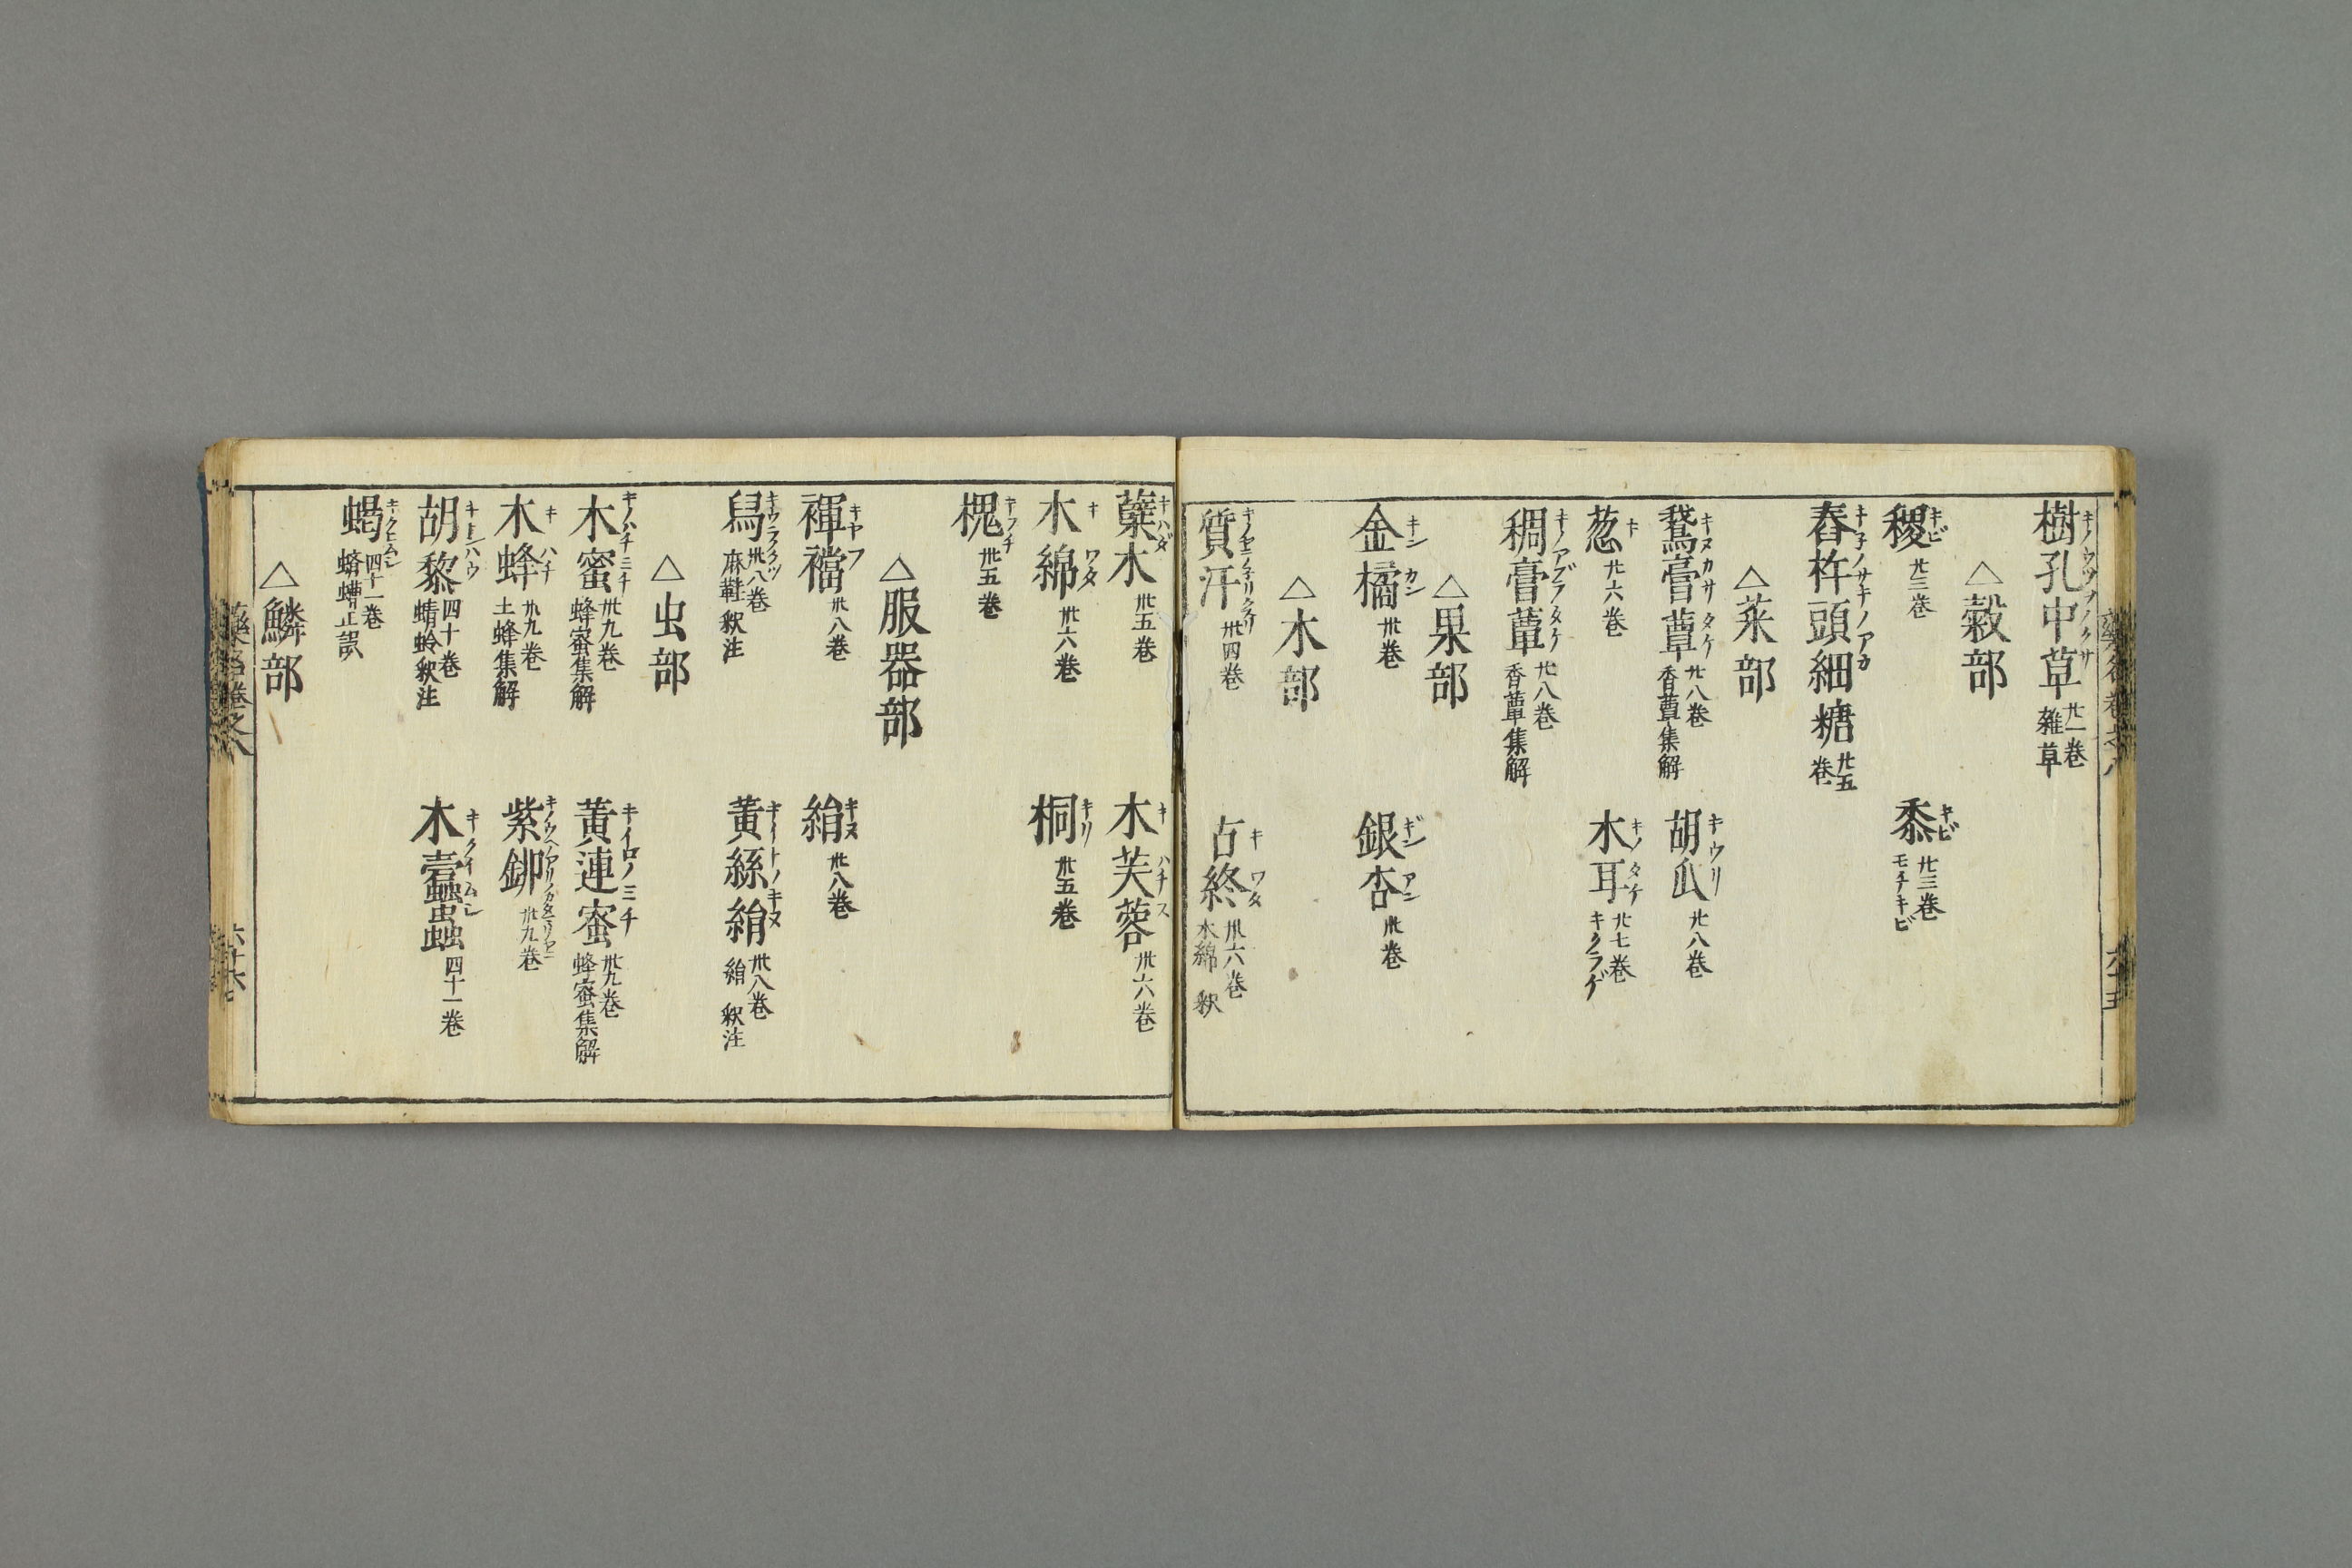 樹孔中草 キノウツアノクサ 廿一巻 雜草
△穀部
稷 キビ 廿三巻
黍 キビ 廿三巻 モチキビ
舂杵頭細糖 キ子ノサキノアカ 廿五巻
△菜部
鵞膏蕈 キヌカサタケ 廿八巻 香蕈集解
胡瓜 キウリ 廿八巻
葱 キ 廿六巻
木耳 キノタケ 廿七巻 キクラゲ
稠膏蕈 キノアブラタケ 廿八巻 香蕈集解
△果部
金橘 キンカン 卅巻
銀杏 ギンアン 卅巻
△木部
質汗 卅四巻
古終 キワタ 卅六巻 木綿 釈
蘗木 キハダ 卅五巻
木芙蓉 キハチス 卅六巻
木綿 キワタ 卅六巻
桐 キリ 卅五巻
槐 キフチ 卅五巻
△服器部
褌襠 キヤフ 卅八巻
絹 キヌ 卅八巻
舄 キウラクツ 卅八巻 麻鞋 釈注
黄絲絹 キイトノキヌ 卅八巻 絹 釈注
△虫部
木蜜 キノハチミチ 卅九巻 蜂蜜集解
黄連蜜 キイロノミチ 卅九巻 蜂蜜集解
木蜂 キハチ 卅九巻 土蜂集解
紫鉚 卅九巻
胡黎 キトンハウ 四十巻 蜻蛉釈注
木蠹蟲 キクイムシ 四十一巻
蝎 キクヒムシ 四十一巻 蠐螬正誤
△鱗部